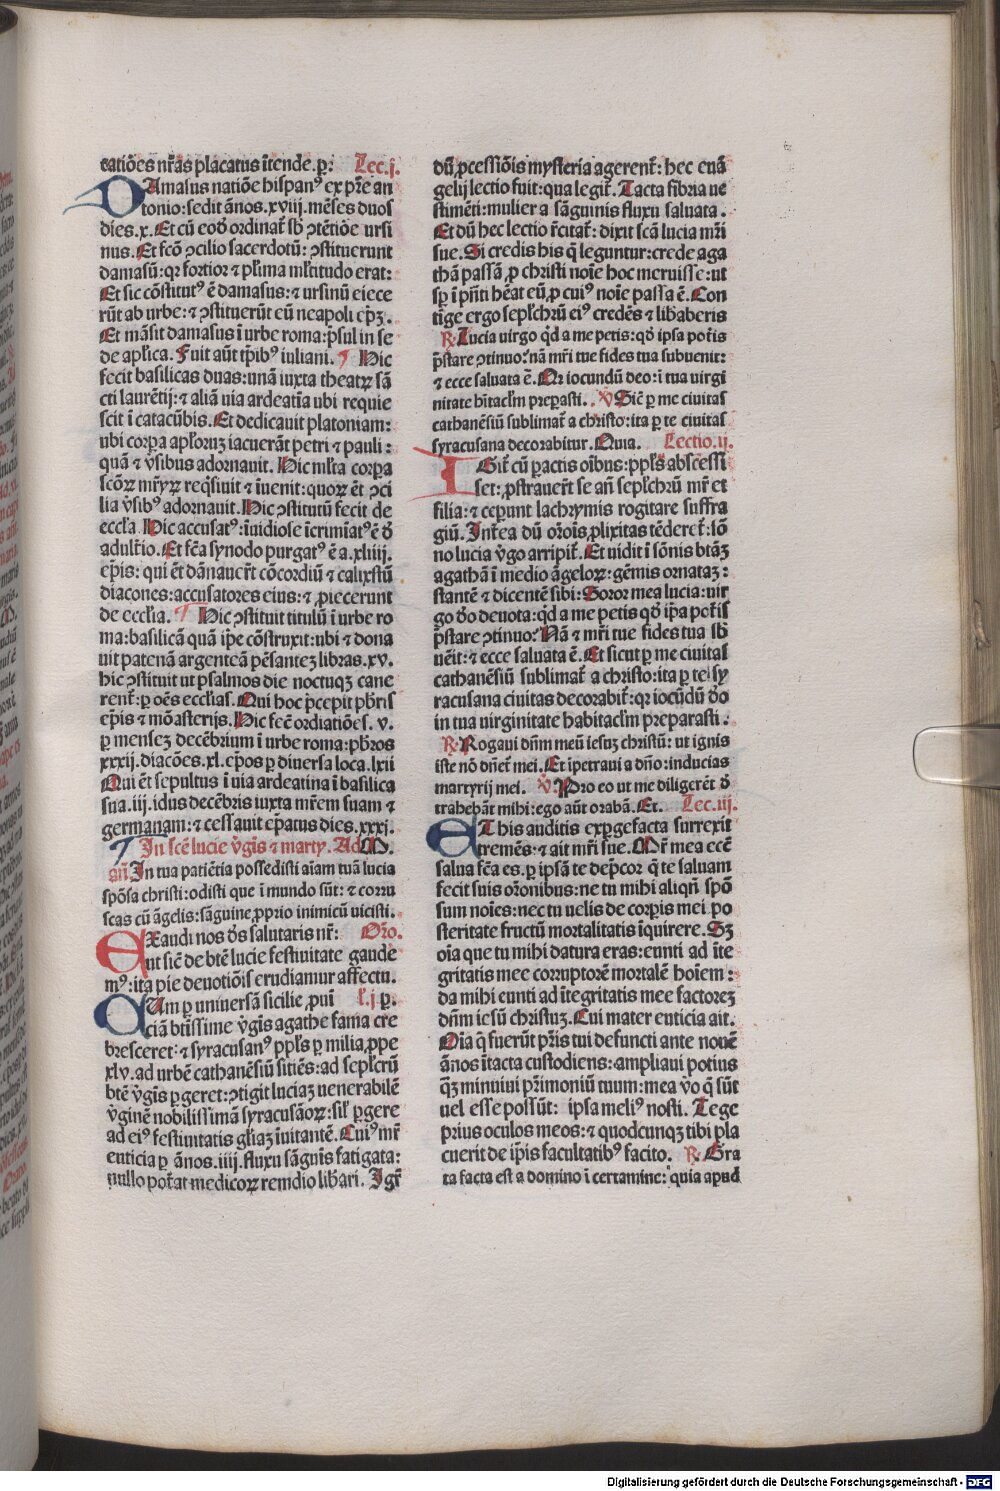 catiões nr̃as placatus ĩtende. ꝑ: Lec. j.
DAmasus natiõe hispanꝰ ex pr̃e an
tonio: sedit ãnos. xviij. mẽses duos
dies. x. Et cũ eoꝺ̃ ordinat̃ sb̃ ꝯtẽtiõe ursi
nus. Et fcõ ꝯcilio sacerdotũ: ꝯstituerunt
damasũ: qr fortior ⁊ pl̃ima ml̃titudo erat:
Et sic cõstitutꝰ ẽ damasus: ⁊ ursinũ eiece
rũt ab urbe: ⁊ ꝯstituerũt eũ neapoli ep̃ꝫ.
Et mãsit damasus ĩ urbe roma: p̃sul in se
de apl̃ica. Fuit aũt tp̃ibꝰ iuliani. ¶ Hic
fecit basilicas duas: unã iuxta theatrꝫ sã
cti laurẽtij: ⁊ aliã uia ardeatĩa ubi requie
scit ĩ catacũbis. Et dedicauit platoniam:
ubi corꝑa apl̃oruꝫ iacuerãt petri ⁊ pauli:
quã ⁊ v̾sibus adornauit. Hic ml̃ta corꝑa
scõꝝ mr̃yꝝ reqͥsiuit ⁊ ĩuenit: quoꝝ ẽt ꝯci
lia v̾sibꝰ adornauit. Hic ꝯstitutũ fecit de
eccl̃a. Hic accusatꝰ: ĩuidiose ĩcrimĩatꝰ ẽ ꝺ̃
adult̃io. Et fc̃a synodo purgatꝰ ẽ a. xliiij.
ep̃is: qui ẽt dãnauer̃t cõcordiũ ⁊ calixstũ
diacones: accusatores eius: ⁊ ꝓiecerunt
de eccl̃ia. ¶ Hic ꝯstituit titulũ ĩ urbe ro
ma: basilicã quã ip̃e cõstruxit: ubi ⁊ dona
uit patenã argenteã pẽsanteꝫ libras. xv.
hic ꝯstituit ut psalmos die noctuqꝫ cane
rent̃: ꝑ oẽs eccl̃ias. Qui hoc p̃cepit pb̃ris
ep̃is ⁊ mõasterijs. Hic fec̃ ordĩatiões. v.
ꝑ menseꝫ decẽbrium ĩ urbe roma: pb̃ros
xxxij. diacões. xl. ep̃os ꝑ diuersa loca. lxii
Qui ẽt sepultus ĩ uia ardeatina ĩ basilica
sua. iij. idus decẽbris iuxta mr̃em suam ⁊
germanam: ⁊ cessauit ep̃atus dies. xxxj.
¶ In scẽ lucie v̾gĩs ⁊ marty. Ad M.
añ. In tua patiẽtia possedisti aĩam tuã lucia
spõsa christi: odisti que ĩ mundo sũt: ⁊ corru
scas cũ ãgelis: sãguine ꝓprio inimicũ uicisti.
EXaudi nos ꝺ̃s salutaris nr̃: Oro.
ut sic̃ de btẽ lucie festiuitate gaude
mꝰ: ita pie deuotiõis erudiamur affectu.
CUm ꝑ uniuersã sicilie ꝓuĩ l. j. ꝑ.
ciã btĩssime v̾gĩs agathe fama cre
bresceret: ⁊ syracusanꝰ ppl̃s ꝑ milia ꝓpe
xlv. ad urbẽ cathanẽsiũ sitiẽs: ad sepl̃crũ
btẽ v̾gĩs ꝑgeret: ꝯtigit luciaꝫ uenerabilẽ
v̾ginẽ nobilissimã syracusãoꝝ: sil̃ ꝑgere
ad eiꝰ festiuitatis gl̃iaꝫ ĩuitantẽ. Cuiꝰ mr̃
euticia ꝑ ãnos. iiij. fluxu sãgnis fatigata:
nullo pot̃at medicoꝝ remdio lib̃ari. Igr̃
dũ ꝓcessiõis mysteria agerent̃: hec euã
gelij lectio fuit: qua legit̃. Tacta fibria ue
stimẽti: mulier a sãguinis fluxu saluata.
Et dũ hec lectio r̃citat̃: dixit scã lucia mr̃i
sue. Si credis his q̃ leguntur: crede aga
thã passã ꝓ christi noĩe hoc meruisse: ut
sꝑ ĩ pñti hẽat eũ, ꝓ cuiꝰ noĩe passa ẽ. Con
tĩge ergo sepl̃chrũ eiꝰ credẽs ⁊ lib̃aberis
R. Lucia uirgo qͥd a me petis: qꝺ̃ ipsa pot̃is
p̃stare ꝯtinuo? nã mr̃i tue fides tua subuenit:
⁊ ecce saluata ẽ. Qr iocundũ deo: ĩ tua uirgi
nitate hĩtacl̃m preꝑasti. V. Sic̃ ꝑ me ciuitas
cathanẽsiũ sublimat̃ a christo: ita ꝑ te ciuitas
syracusana decorabitur. Quia. Lectio. ij.
IGit̃ cũ ꝑactis oĩbus: ppl̃s abscessi
set: ꝓstrauer̃t se añ sepl̃chrũ mr̃ et
filia: ⁊ ceperunt lachrymis rogitare suffra
giũ. Int̃ea dũ orõis ꝓlixitas tẽderet̃: sõ
no lucia v̾go arripit̃. Et uidit ĩ sõnis btãꝫ
agathã ĩ medio ãgeloꝝ: gẽmis ornataꝫ:
stantẽ ⁊ dicentẽ sibi: Soror mea lucia: uir
go ꝺ̃o deuota: qͥd a me petis qꝺ̃ ip̃a pot̃is
p̃stare ꝯtinuo? Nã ⁊ mr̃i tue fides tua sb̃
uẽit: ⁊ ecce saluata ẽ. Et sicut ꝑ me ciuitas
cathanẽsiũ sublimat̃ a christo: ita ꝑ te sy
racusana ciuitas decorabit̃: qr iocũdũ ꝺ̃o
in tua uirginitate habitacl̃m preꝑasti.
R. Rogaui dñm meũ iesuꝫ christũ: ut ignis
iste nõ dñet̃ mei. Et ĩpetraui a dño: inducias
martyrij mei. V. Pro eo ut me diligerẽt ꝺ̃
trahebãt mihi: ego aũt orabã. Et. Lec. iij.
ET his auditis exꝑgefacta surrexit
tremẽs: ⁊ ait mr̃i sue. Mr̃ mea eccẽ
salua fc̃a es. ꝑ ipsã te dep̃cor q̃ te saluam
fecit suis orõnibus: ne tu mihi aliqñ spõ
sum noĩes: nec tu uelis de corꝑis mei po
steritate fructũ mortalitatis ĩquirere. Sꝫ
oĩa que tu mihi datura eras: eunti ad ĩte
gritatis mee corruptorẽ mortalẽ hoĩem:
da mihi eunti ad ĩtegritatis mee factoreꝫ
dñm iesũ christuꝫ. Cui mater euticia ait.
Oĩa q̃ fuerũt pr̃is tui defuncti ante nouẽ
ãnos ĩtacta custodiens: ampliaui potius
qͣꝫ minuiui pr̃imoniũ tuum: mea v̾o q̃ sũt
uel esse possũt: ipsa meliꝰ nosti. Tege
prius oculos meos: ⁊ quodcunqꝫ tibi pla
cuerit de ip̃is facultatibꝰ facito. R. Gra
ta facta est a domino ĩ certamine: quia apud
Digitalisierung gefördert durch die Deutsche Forschungsgemeinschaft - DFG